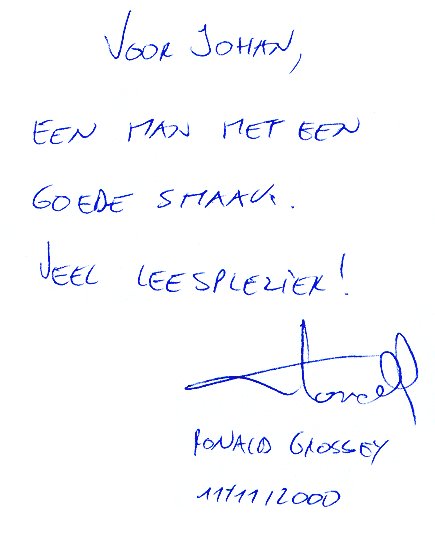 VOOR JOHAN,
EEN MAN MET EEN
GOEDE SMAAK.
VEEL LEESPLEZIER!
RONALD GROSSEY
11/11/2000